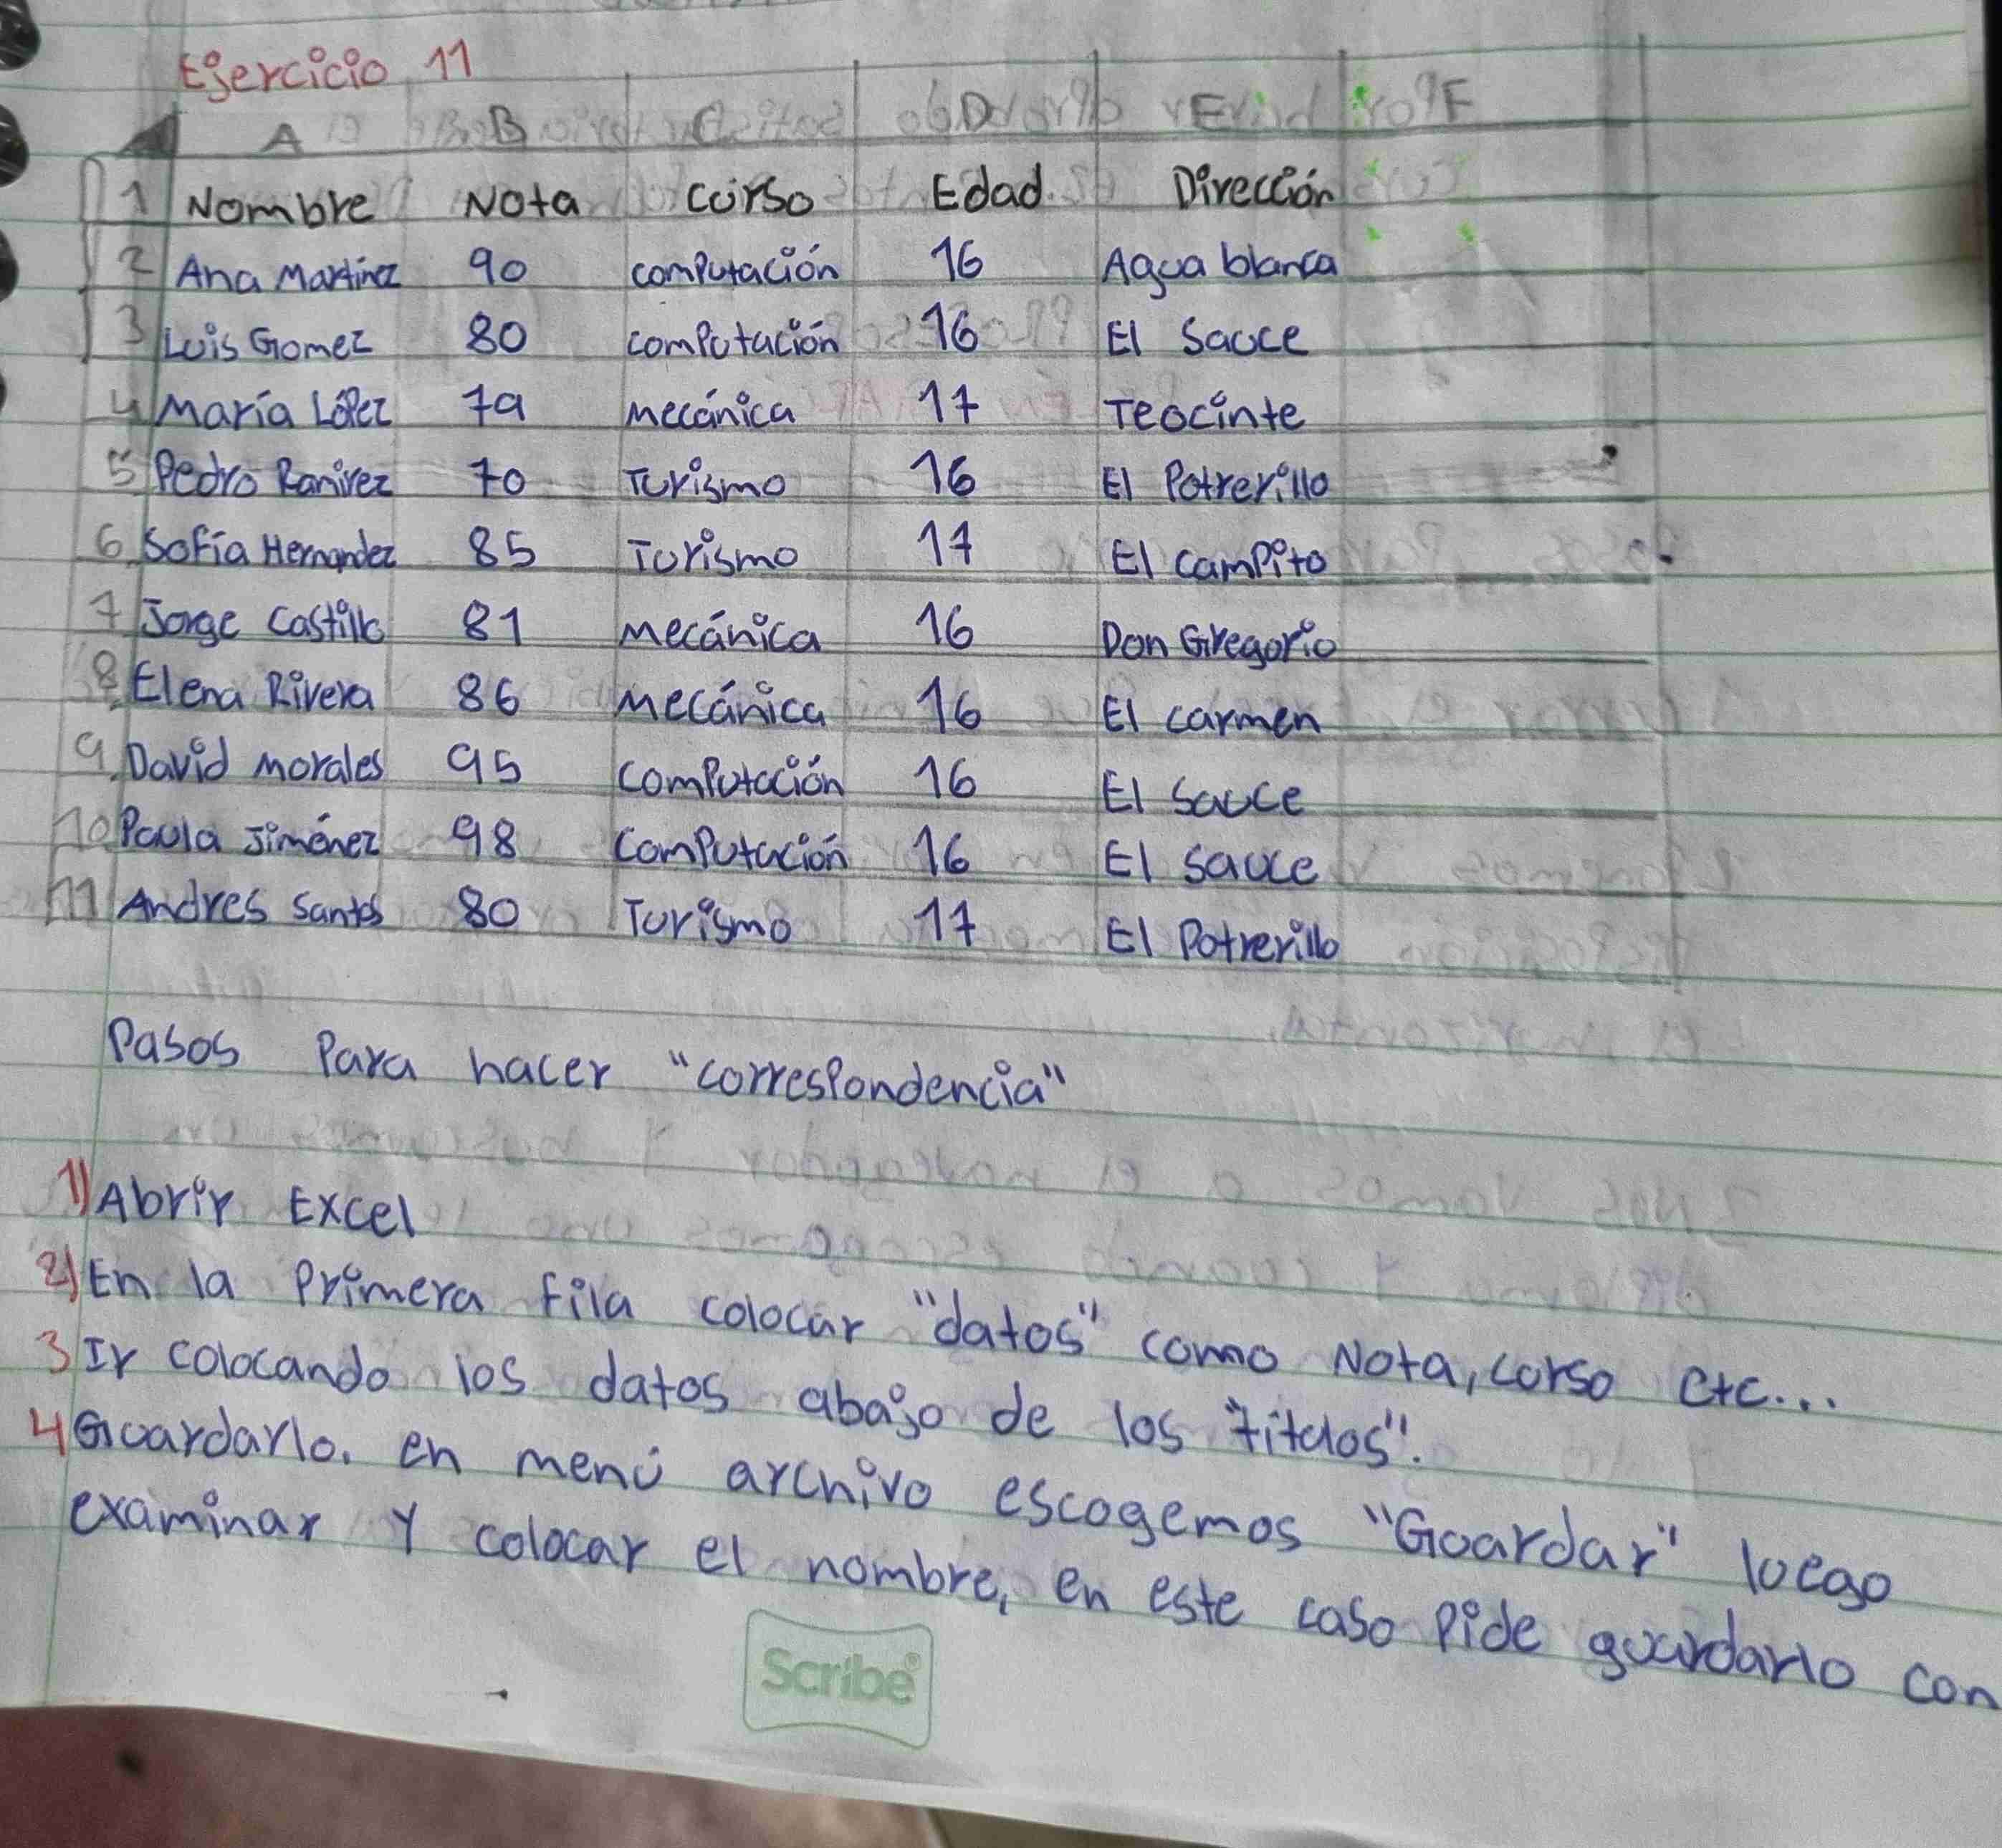 Ejercicio 11
A B C D E F
1 Nombre Nota Curso Edad Dirección
2 Ana Martinez 90 computación 16 Agua blanca
3 Luis Gomez 80 computación 16 El Sauce
4 María López 79 mecánica 17 Teocinte
5 Pedro Ramirez 70 Turismo 16 El Potrerillo
6 Sofía Hernandez 85 Turismo 17 El campito
7 Jorge Castillo 81 mecánica 16 Don Gregorio
8 Elena Rivera 86 mecánica 16 El carmen
9 David morales 95 computación 16 El Sauce
10 Paola Jiménez 98 computación 16 El sauce
11 Andres Santos 80 Turismo 17 El Potrerillo
Pasos Para hacer "correspondencia"
1) Abrir Excel
2) En la Primera fila colocar "datos" como Nota, curso etc...
3 Ir colocando los datos abajo de los "titulos".
4 Guardarlo. en menú archivo escogemos "Guardar" luego
examinar y colocar el nombre, en este caso pide guardarlo con
Scribe®